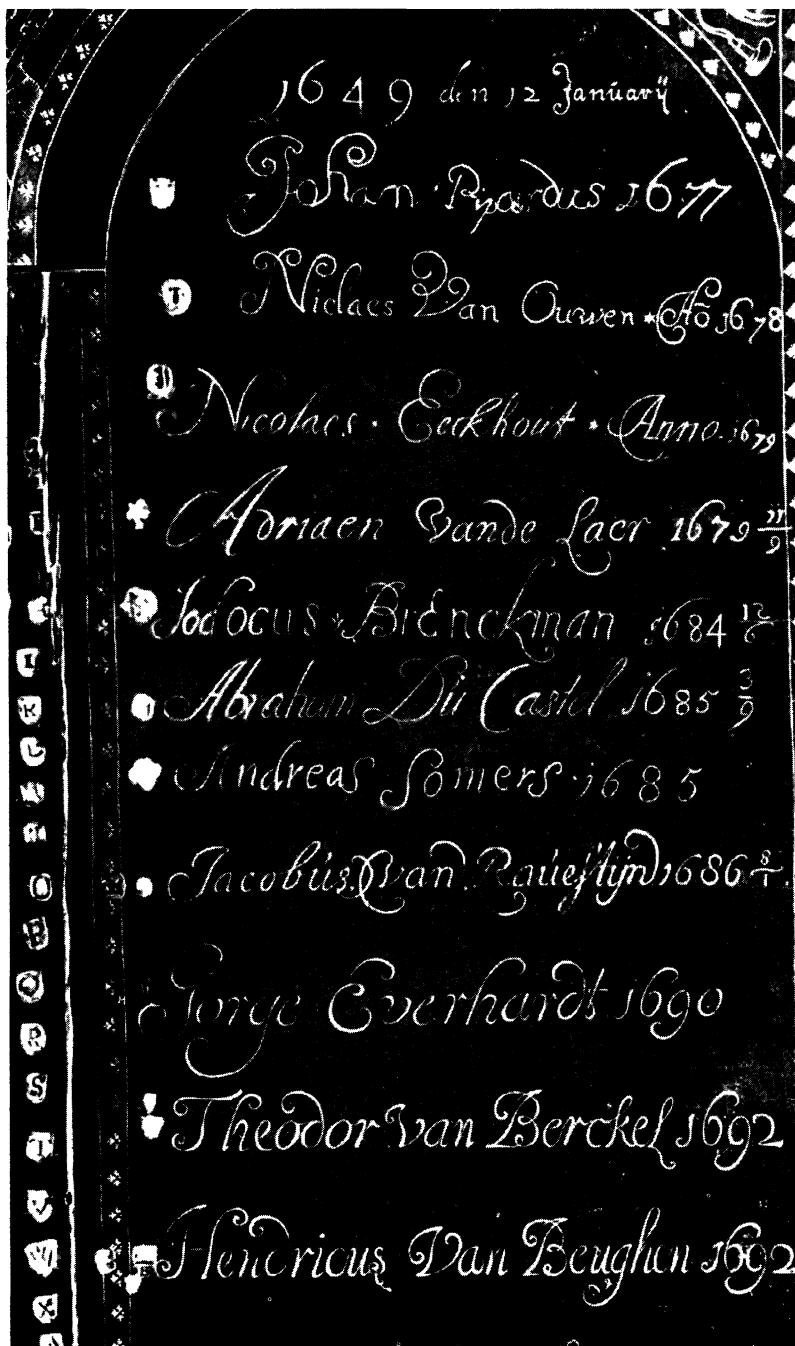 1649 den 12 Janúarÿ
Johan Pijardus 1677
Niclaes Van Ouwen * Aō 1678
Nicolaes · Eeckhout * Anno 1679
Adriaen Vande Laer 1679 21/9
Jodocus * Brienckman 1684 12/6
Abraham Dú Castel 1685 3/9
Andreas Somers · 1685
Jacobús Van Raúestijn 1686 8/1
Jorge Everhardt 1690
Theodor van Berckel 1692
Hendricus Van Beughen 1692
I
K
L
M
N
O
P
Q
R
S
T
V
W
X